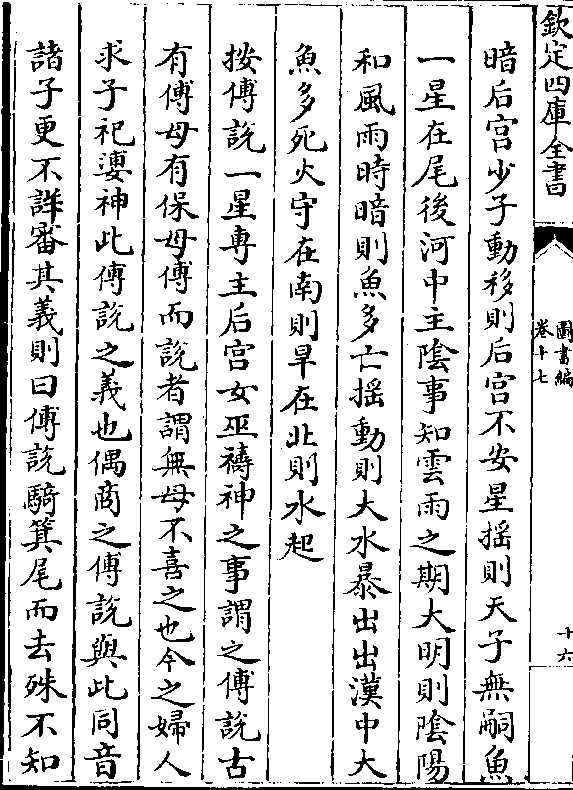 欽定四庫全書
圖書編
卷十七
十六
暗后宫少子動移則后宫不安星揺則天子無嗣魚
一星在尾後河中主陰事知雲雨之期大明則陰陽
和風雨時暗則魚多亡揺動則大水暴出出漢中大
魚多死火守在南則旱在北則水起
按傅說一星專主后宫女巫禱神之事謂之傅說古
有傅母有保母傅而說者謂無母不喜之也今之婦人
求子祀婆神此傅說之義也偶商之傅說與此同音
諸子更不詳審其義則曰傅說騎箕尾而去殊不知